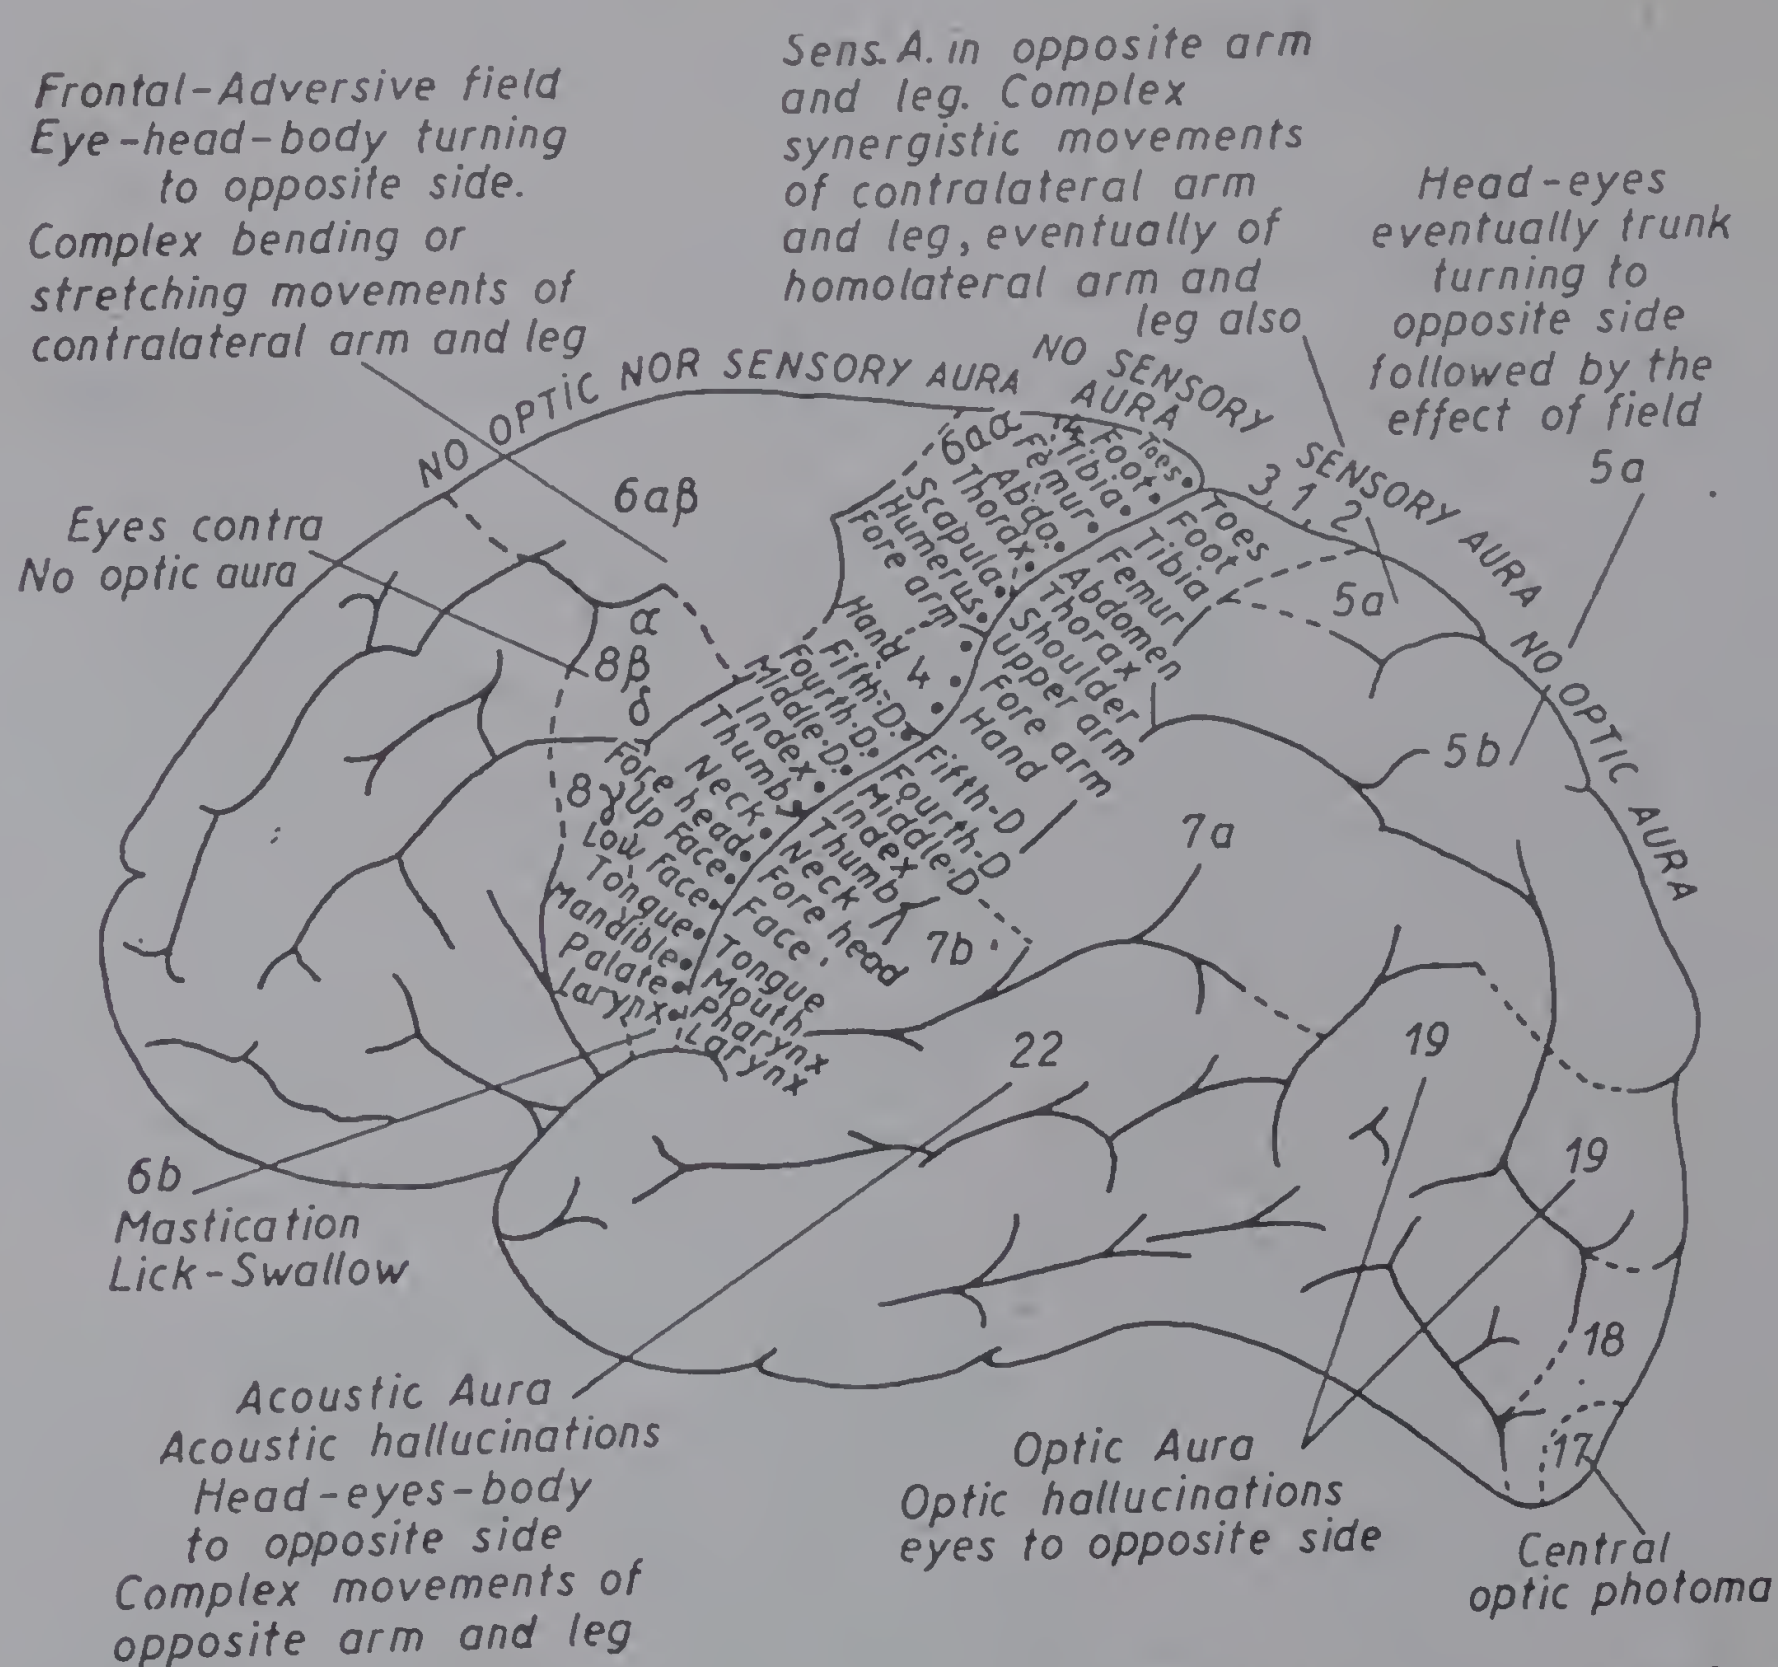 Frontal-Adversive field
Eye-head-body turning
to opposite side.
Complex bending or
stretching movements of
contralateral arm and leg
Sens. A. in opposite arm
and leg. Complex
synergistic movements
of contralateral arm
and leg, eventually of
homolateral arm and
leg also
Head-eyes
eventually trunk
turning to
opposite side
followed by the
effect of field
5a
NO OPTIC NOR SENSORY AURA
NO SENSORY
AURA
3, 1, 2
SENSORY AURA
NO OPTIC AURA
Eyes contra
No optic aura
6aβ
6aα
4
α
8β
δ
8γ
Toes
Foot
Tibia
Femur
Abdo.
Thorax
Scapula
Humerus
Fore arm
Hand
4
Fifth-D.
Fourth-D.
Middle-D.
Index
Thumb
Neck
Fore head
Up Face
Low Face
Tongue
Mandible
Palate
Larynx
Toes
Foot
Tibia
Femur
Abdomen
Thorax
Shoulder
Upper arm
Fore arm
Hand
Fifth-D
Fourth-D
Middle-D
Index
Thumb
Neck
Fore head
Face
Tongue
Mouth
Pharynx
Larynx
5a
5b
7a
7b
22
19
19
18
17
6b
Mastication
Lick-Swallow
Acoustic Aura
Acoustic hallucinations
Head-eyes-body
to opposite side
Complex movements of
opposite arm and leg
Optic Aura
Optic hallucinations
eyes to opposite side
Central
optic photoma